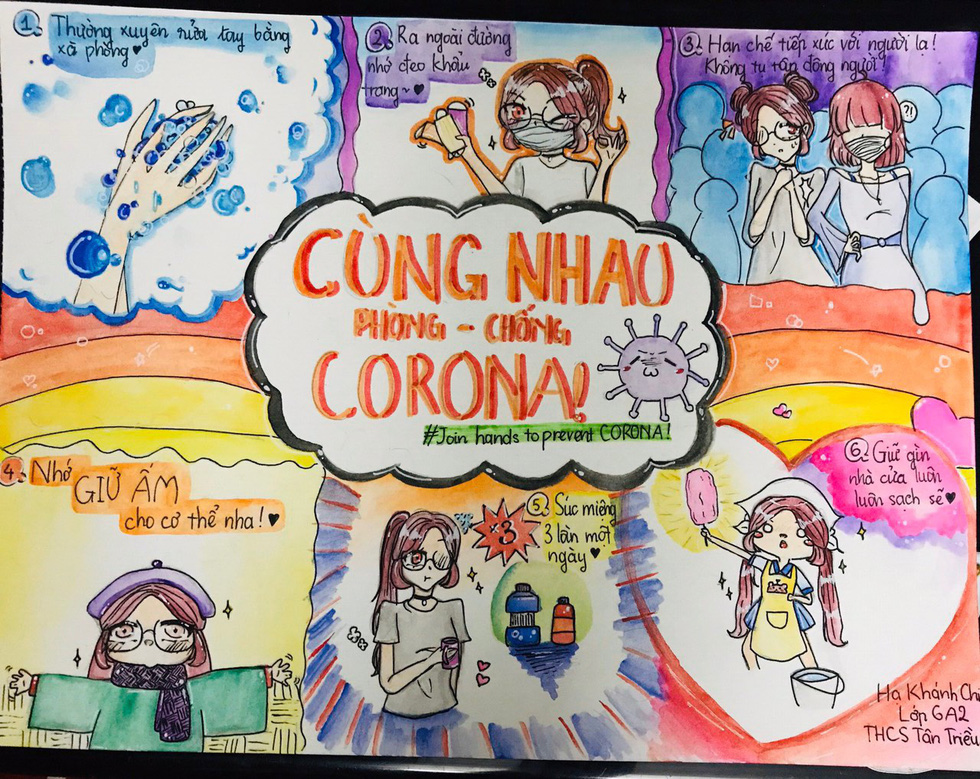 1. Thường xuyên rửa tay bằng
xà phòng♥
2. Ra ngoài đường
nhớ đeo khẩu
trang~♥
3. Hạn chế tiếp xúc với người lạ!
Không tụ tập đông người!
?!
CÙNG NHAU
PHÒNG - CHỐNG
CORONA!
#Join hands to prevent CORONA!
4. Nhớ
GIỮ ẤM
cho cơ thể nha!♥
5. Súc miệng
3 lần một
ngày♥
x3
6. Giữ gìn
nhà cửa luôn
luôn sạch sẽ♥
Hà Khánh Chi
Lớp 6A2
THCS Tân Triều